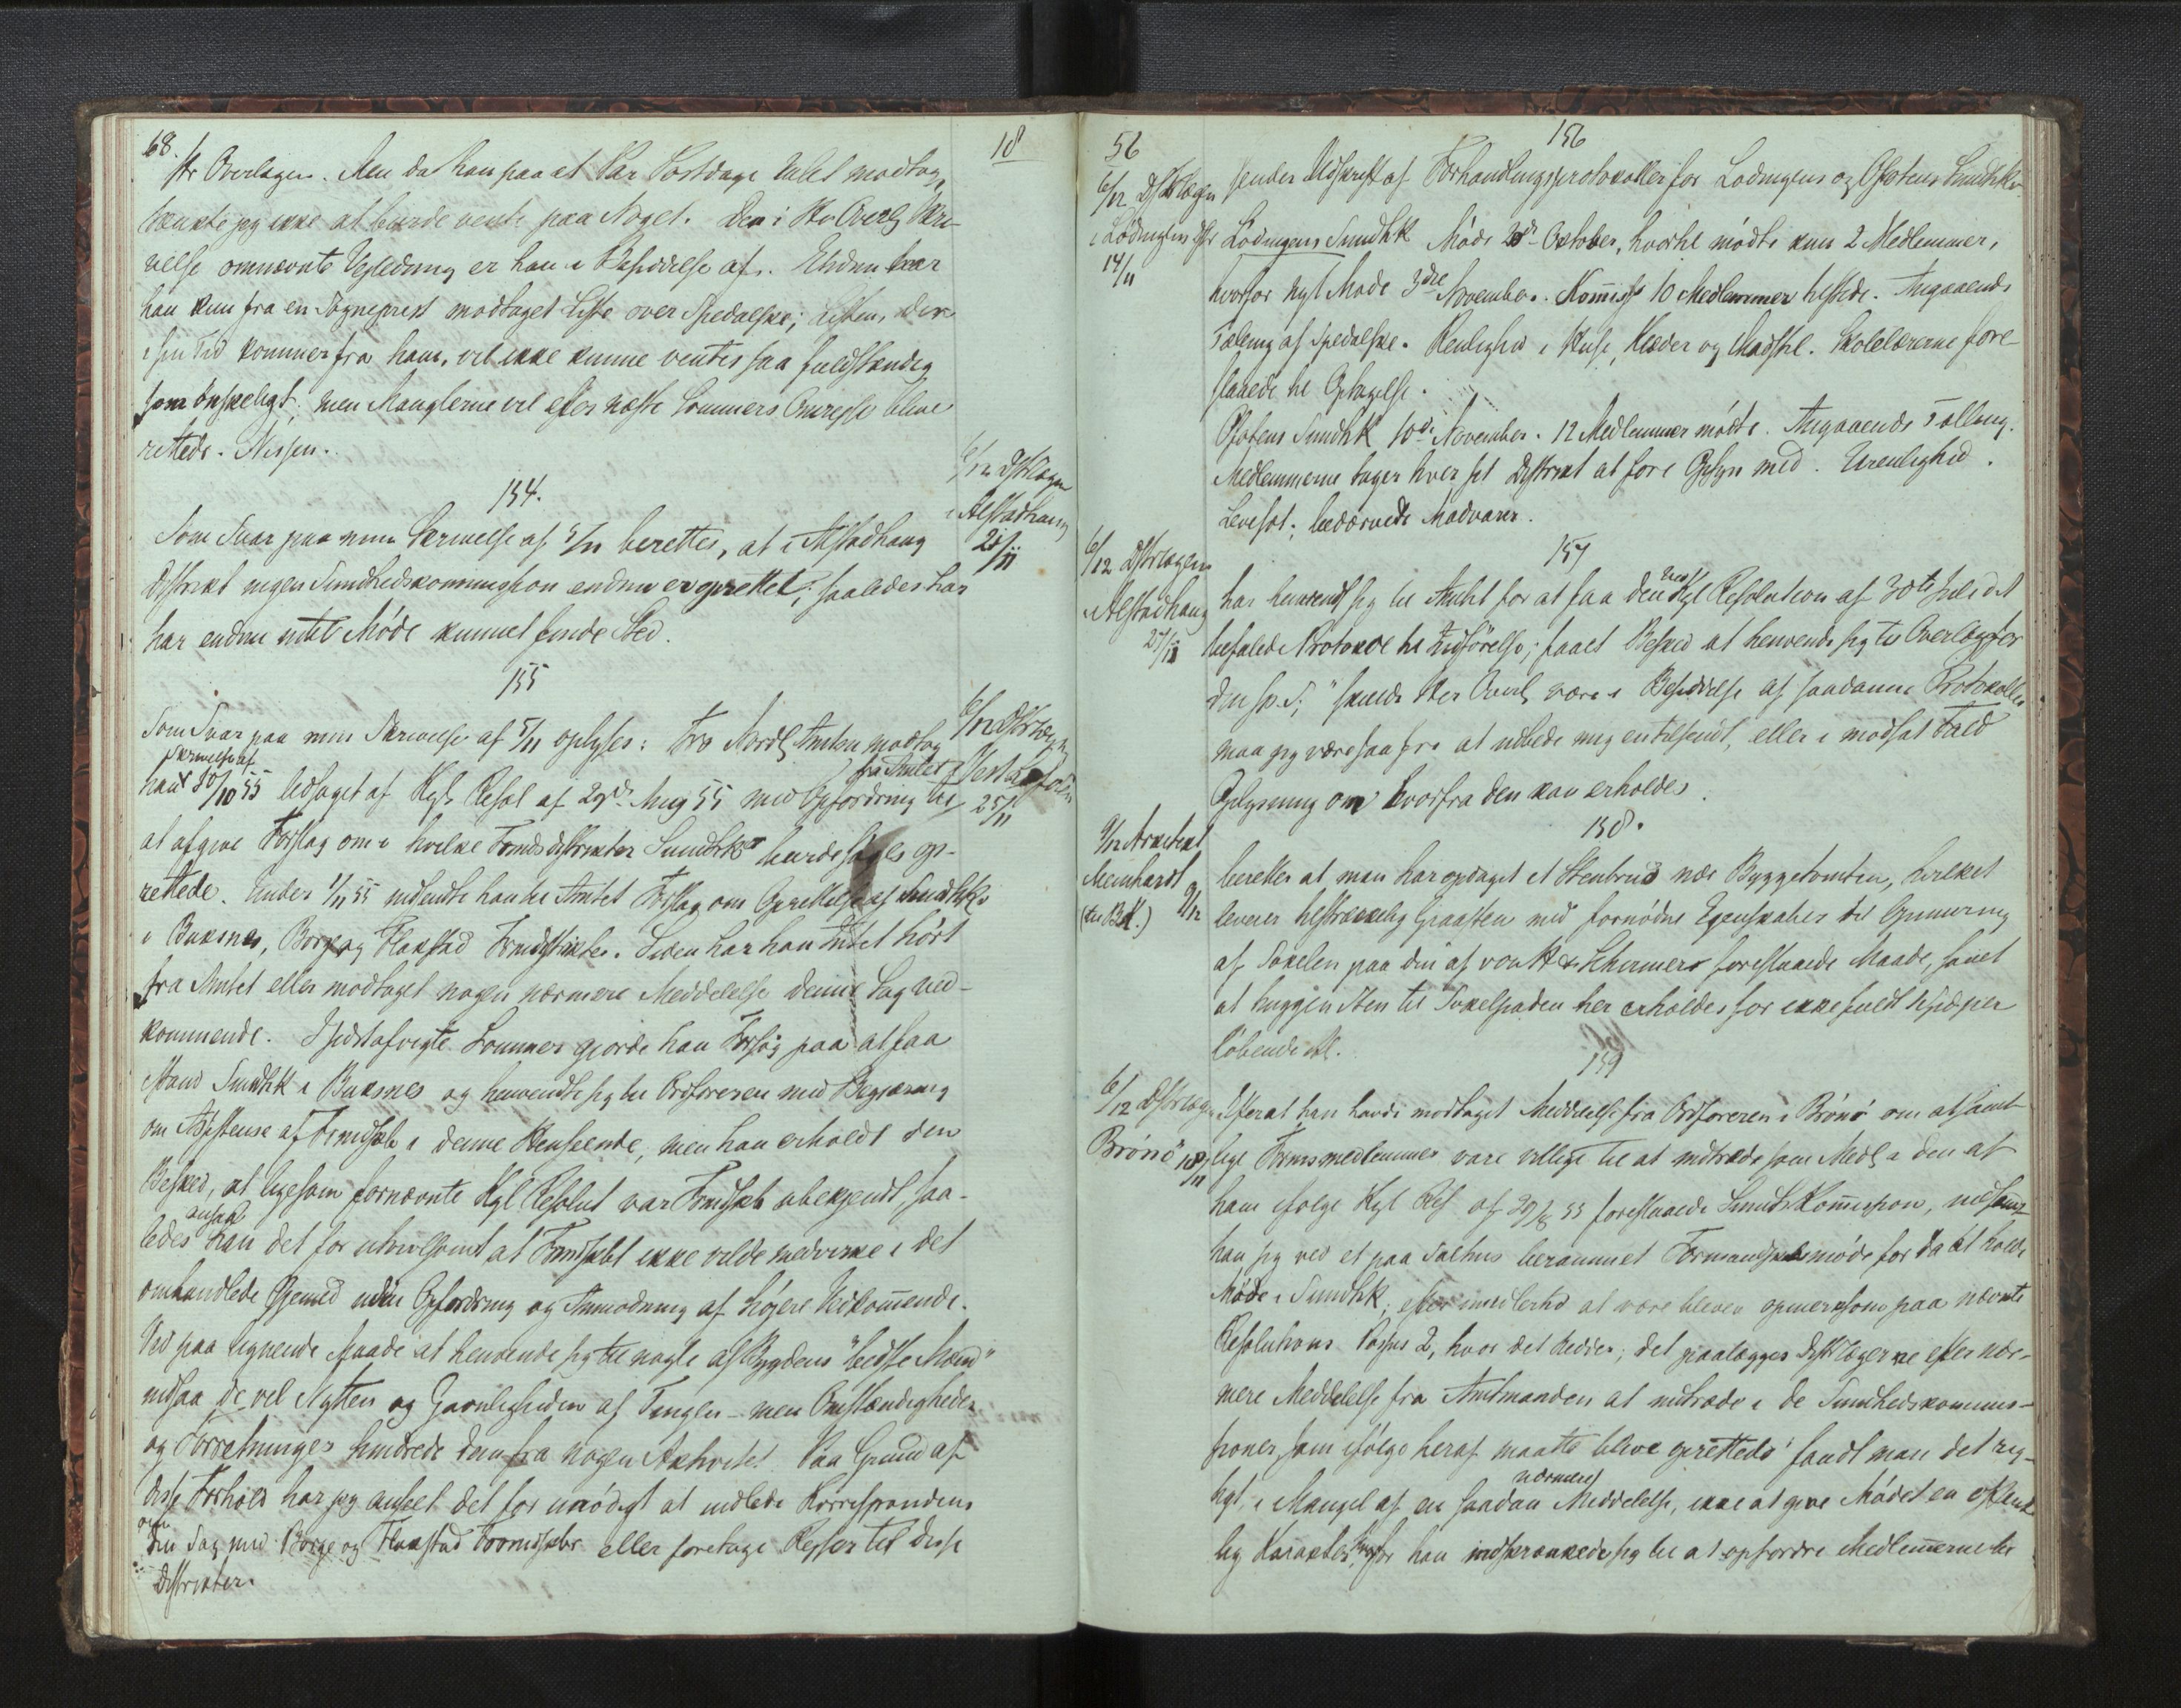 68.
18
Hr Overlægen. Men da han paa et Par Postdage Intet modtog,
tænkte jeg ikke at burde vente paa Noget. Den i Hr Overl Skri-
velse omnævnte Vejledning er han i Besiddelse af. Endnu har
han kun fra en Sogneprest modtaget Liste over Spedalske; Listen, den
i sin Tid kommer fra ham, vil ikke kunne ventes saa fuldstændig
som ønskeligt, men Manglerne vil efter næste Sommers Omrejse blive
rettede. Nissen.
154.
6/12 Distlægen
i Alstadhaug
21/11
Som Svar paa min Skrivelse af 5/11 berettes, at i Alstadhaug
Distrikt ingen Sundhedskommission endnu er oprettet; saaledes har
har endnu intet Møde kunnet finde Sted.
155
6/12 Distrlægen
i Vest Lofoten
25/11
Som Svar paa min Skrivelse af 5/11 oplyses: Fra Nordl Amten modtog
Skrivelse af
fra Amtet
han 30/10 55 Udtoget af Kgl. Resol af 29de Aug 55 med Opfordring til
at afgive Forslag om i hvilke Formdsdistrikter Sundhk burde søges op-
rettede. Under 1/11 55 indsendte han til Amtet Forslag om Oprettelse af Sundhk
i Buksnes, Borge og Flakstad Formdsdistrikter. Siden har han Intet hørt
fra Amtet eller modtaget nogen nærmere Meddelelse denne Sag ved-
kommende. I sidstafvigte Sommer gjorde han Forsøg paa at faa
istand Sundhk i Buksnes og henvendte sig til Ordføreren med Begjæring
om Assistense af Formdsk i denne Henseende, men han erholdt den
Besked, at ligesom fornævnte Kgl Resolut var Formdsk ubekjendt, saa-
ansaa
ledes han det for utvivlsomt at Formdskbt ikke vilde medvirke i det
omhandlede Øjemed uden Opfordring og Anmodning af højere Vedkommende.
Ved paa lignende Maade at henvende sig til nogle af Bygdens "bedste Mænd"
indsaa de vel Nytten og Gavnligheden af Tingen - men Omstændigheder
og Forretninger hindrede dem fra nogen Aktivitet. Paa Grund af
disse Forhold har jeg anseet det for unødigt at indlede Korrespondens
om
den Sag med Borge og Flakstad Formdskber eller foretage Rejser til disse
Distrikter.
56
156
6/12 Distrlægen
i Lødingens Distr
14/11
sender Udskrift af Forhandlingsprotokollen for Lødingens og Ofotens Sundhk.
Lødingens Sundhk Møde Oktober, hvortil mødte kun 2 Medlemmer,
hvorfor nyt Møde 3die November. Komiss 10 Medlemmer tilstede. Angaaende
Tælling af Spedalske. Renlighed i Huse, Klæder og Madstel. Skolelærerne fore-
slaaede til Optagelse.
Ofotens Sundhk 10de November. 12 Medlemmer mødte. Angaaende Tælling.
Medlemmerne tager hver sit Distrikt at føre Opsyn med. Urenlighed.
Levesæt; bedærvede Madvarer.
157
6/12 Distrlægen
i Alstadhaug
27/11
har henvendt sig til Amtet for at faa den ved Kgl Resolution af 30te Juli d A
befalede Protokol til Indførelse; faaet Besked at henvende sig til Overlægen for
den sp. S; "skulde Her Overl være i Besiddelse af saadanne Protokoller
maa jeg være saa fri at udbede mig en tilsendt, eller i modsat Fald
Oplysning om hvorfra den kan erholdes.
158.
9/12 Arkitekt
Meinhardt
(til BK.)
9/12
beretter at man har opdaget et Stenbrud nær Byggetomten, hvilket
leverer tilstrækkelig Graasten med fornødne Egenskaber til Opmuring
af Sokelen paa den af von H & Schirmer foreslaaede Maade, samt
at huggen Sten til Sokelpaden her erholdes for ikke fuldt Spd per
løbende Al.
159
6/12 Distrlægen
Brønø 18/11
Efterat han havde modtaget Meddelelse fra Ordføreren i Brønø om at samt-
lige Formsmedlemmer vare villige til at indtræde som Medl i den af
ham ifølge Kgl Res af 29/8 55 foreslaaede Sundh Komission,
han sig ved et paa Salhus berammet Formandskabsmøde for da at holde
Møde i Sundhk, efter imidlertid at være bleven opmerksom paa nævnte
Resolutions Passus 2, hvor det hedder; det paalægges Distrlægerne efter nær-
mere Meddelelse fra Amtmanden at indtræde i de Sundhedskommis-
sioner, som ifølge heraf maatte blive oprettede" fandt man det rig-
nærmere
tigt, i Mangel af en saadan Meddelelse, ikke at give Mødet en offent-
lig Karakter, hvorfor han indskrænkede sig til at opfordre Medlemmerne til